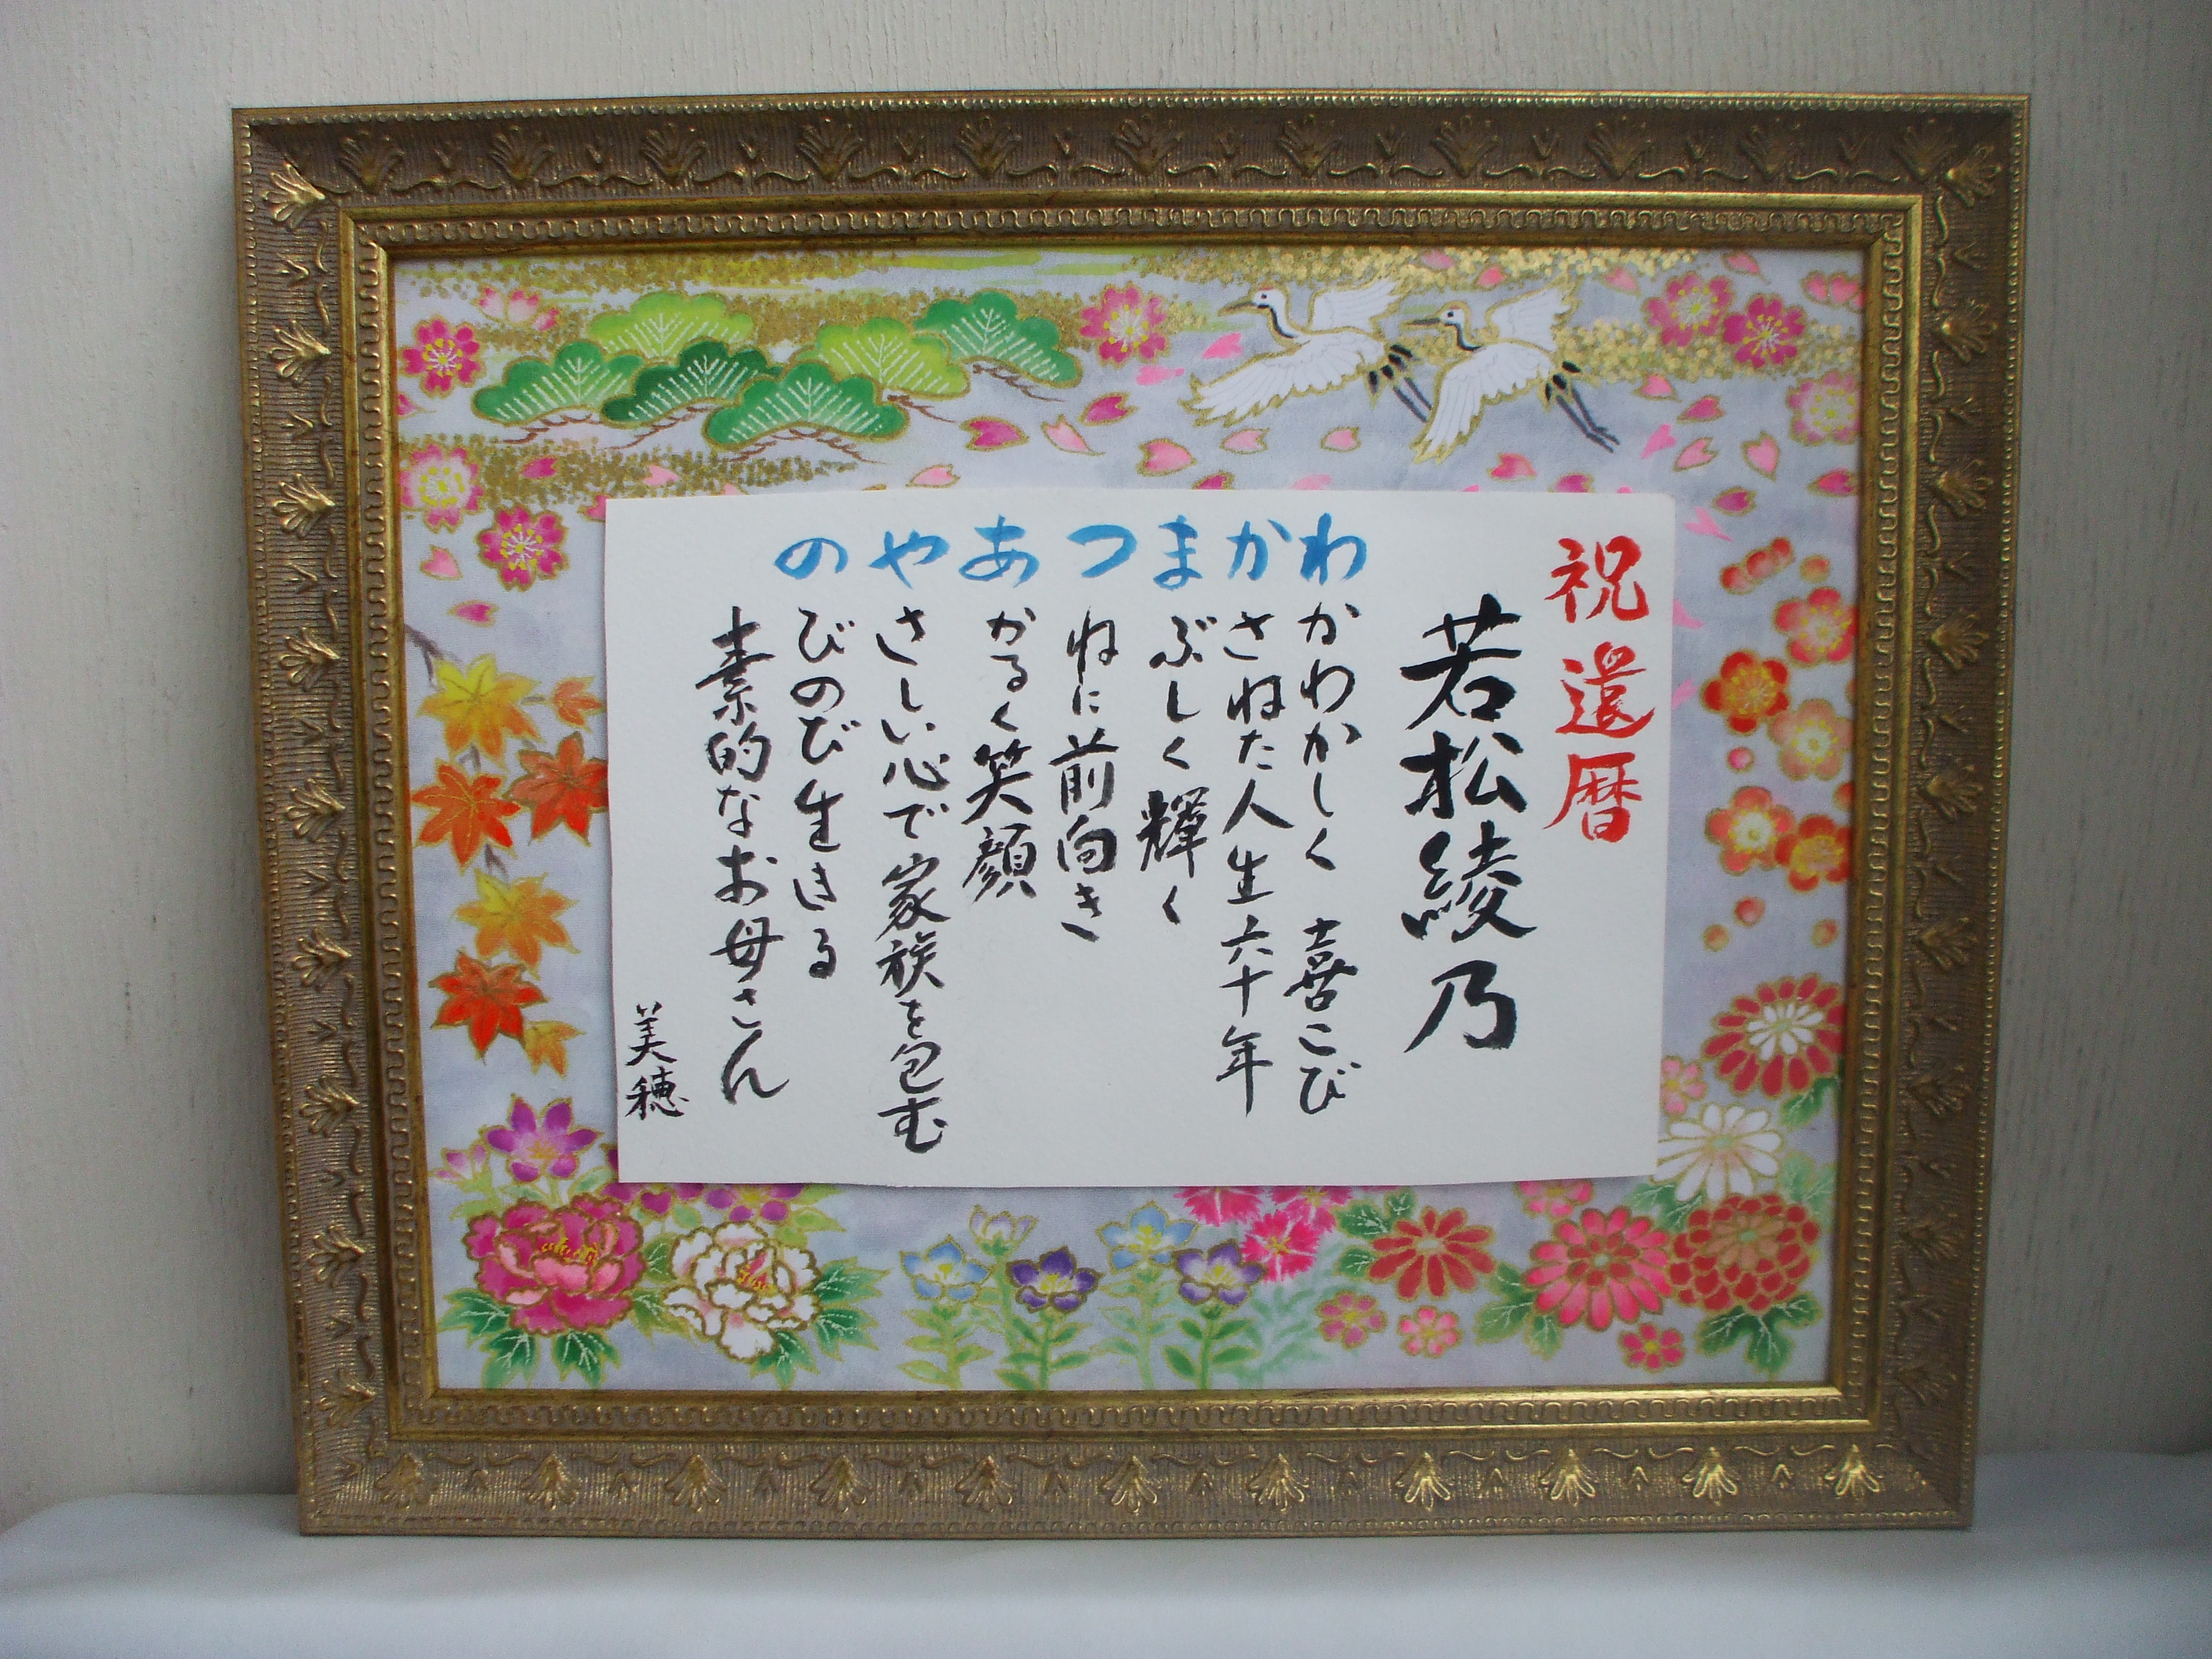 祝還暦
若松綾乃
わかわかしく 喜こび
かさねた人生六十年
まぶしく輝く
つねに前向き
あかるく笑顔
やさしい心で家族を包む
のびのび生きる
素的なお母さん
美穂